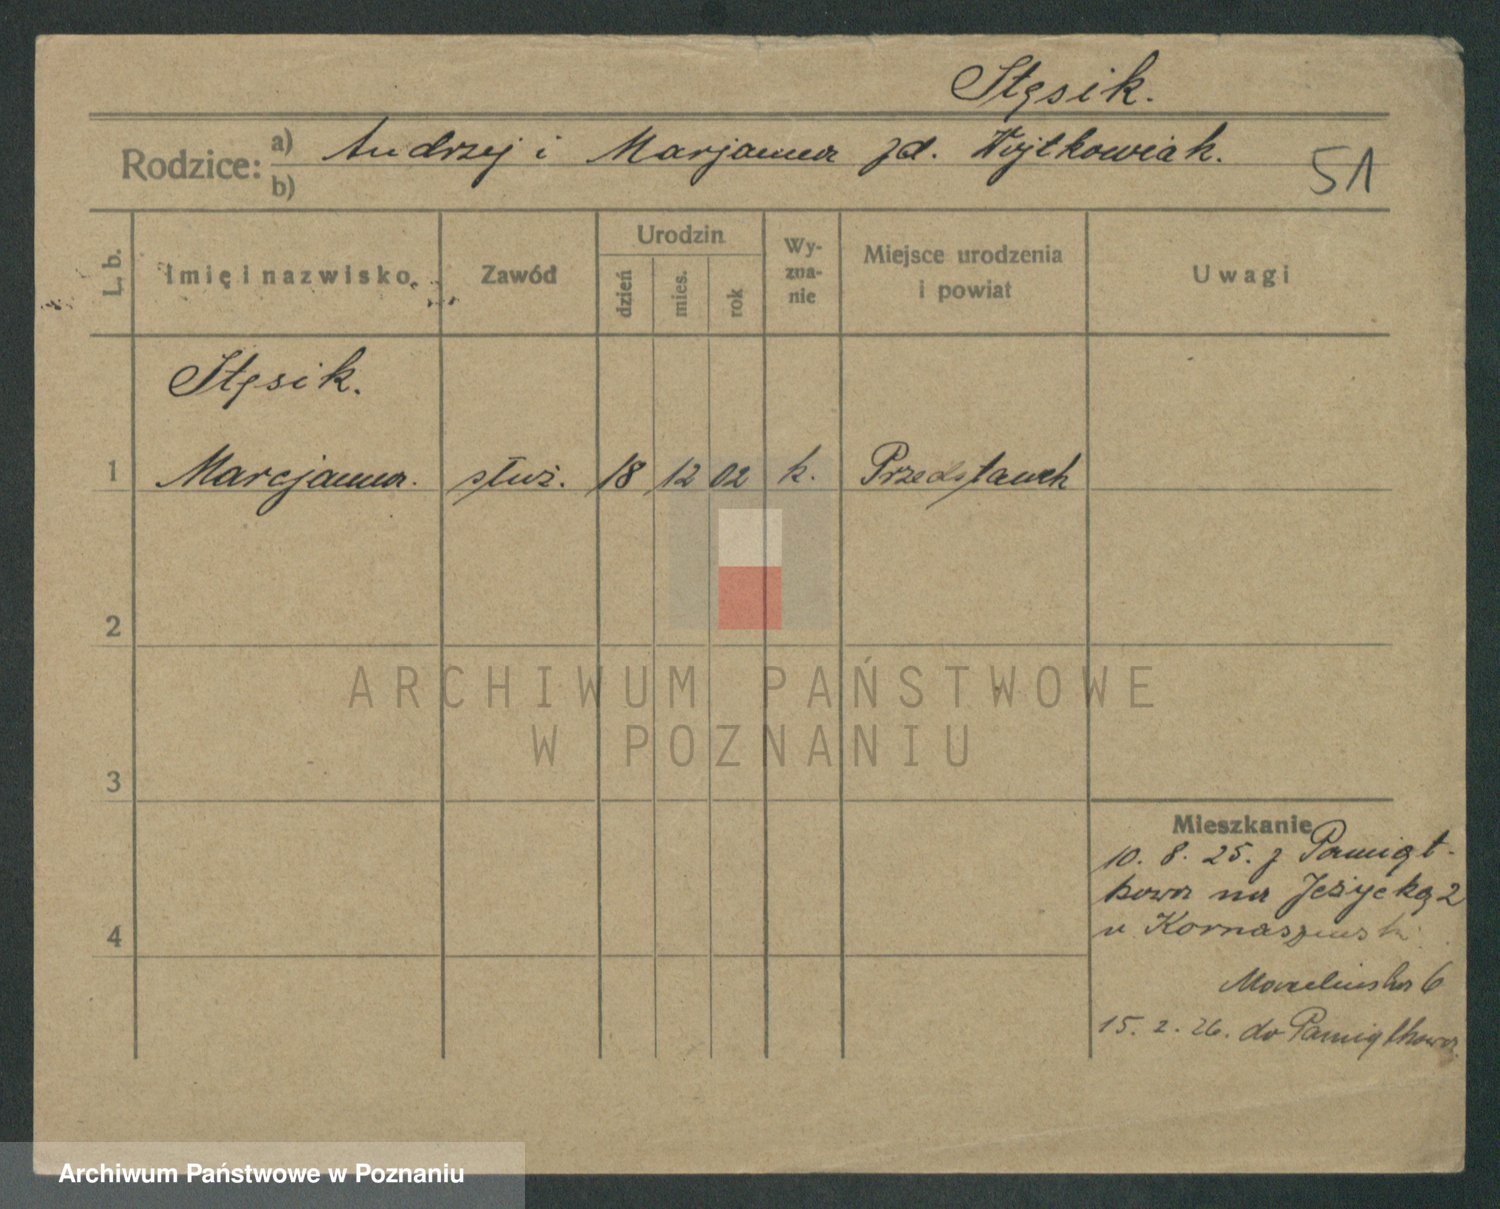 Stęsik.
Rodzice: a) Andrzej i Marjanna zd. Wojtkowiak.
b)
51
L. b.
Imię i nazwisko
Zawód
Urodzin
dzień
mies.
rok
Wy-
zna-
nie
Miejsce urodzenia
i powiat
Uwagi
Stęsik.
1 Marcjanna. służ. 18 12 02 k. Przedstawek
2
3
4
Mieszkanie
10. 8. 25. z Pamiąt-
kowa na Jeżycką 2
u Kornaszewsk
Marcelińska 6
15. 2. 26. do Pamiątkowa
ARCHIWUM PAŃSTWOWE
W POZNANIU
Archiwum Państwowe w Poznaniu